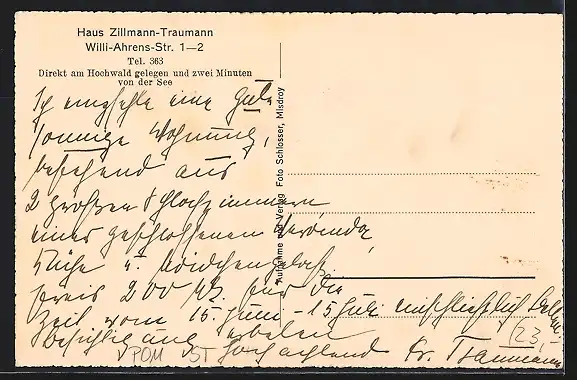 Haus Zillmann-Traumann
Willi-Ahrens-Str. 1—2
Tel. 363
Direkt am Hochwald gelegen und zwei Minuten
von der See
Ich empfehle eine gute
sonnige Wohnung,
bestehend aus
2 großen Schlafzimmern
einer geschlossenen Veranda
Küche u.
Preis 200 M. für die
Zeit vom 15. Juni - 15 Juli einschließlich
Besichtigung erbeten
Hochachtend Fr. Traumann
Aufnahme und Verlag Foto Schlosser, Misdroy
POM ST
23,-